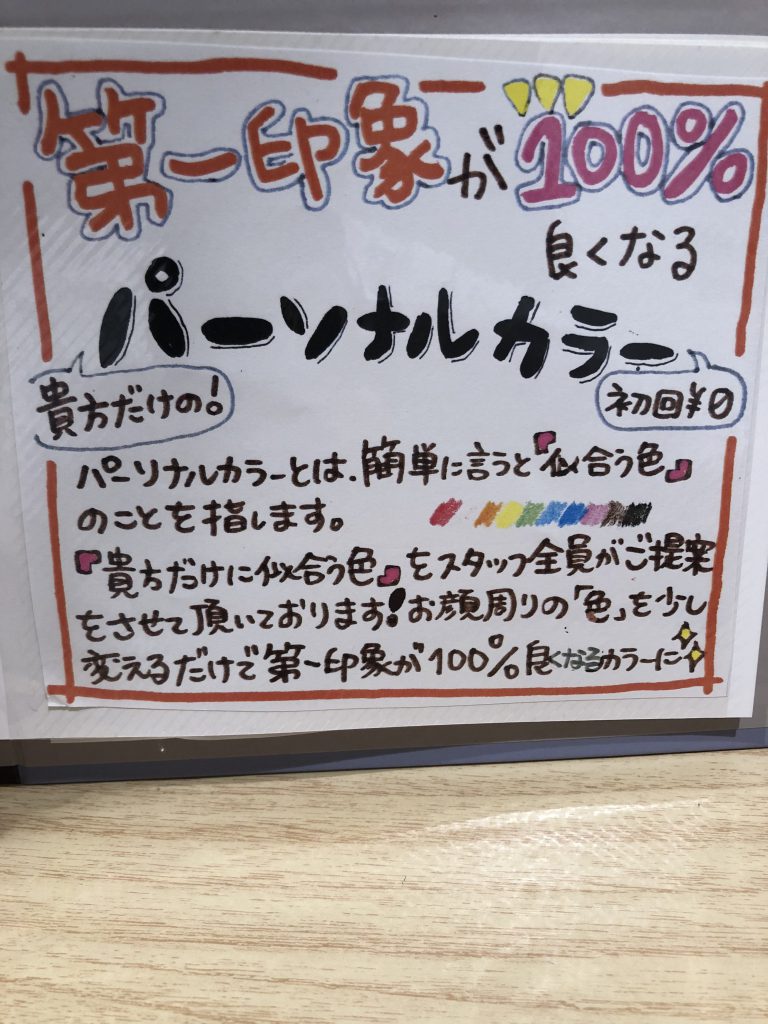 第一印象が100%
良くなる
パーソナルカラー
貴方だけの!
初回¥0
パーソナルカラーとは、簡単に言うと『似合う色』
のことを指します。
『貴方だけに似合う色』をスタッフ全員がご提案
をさせて頂いております!お顔周りの「色」を少し
変えるだけで第一印象が100%良くなるカラーに